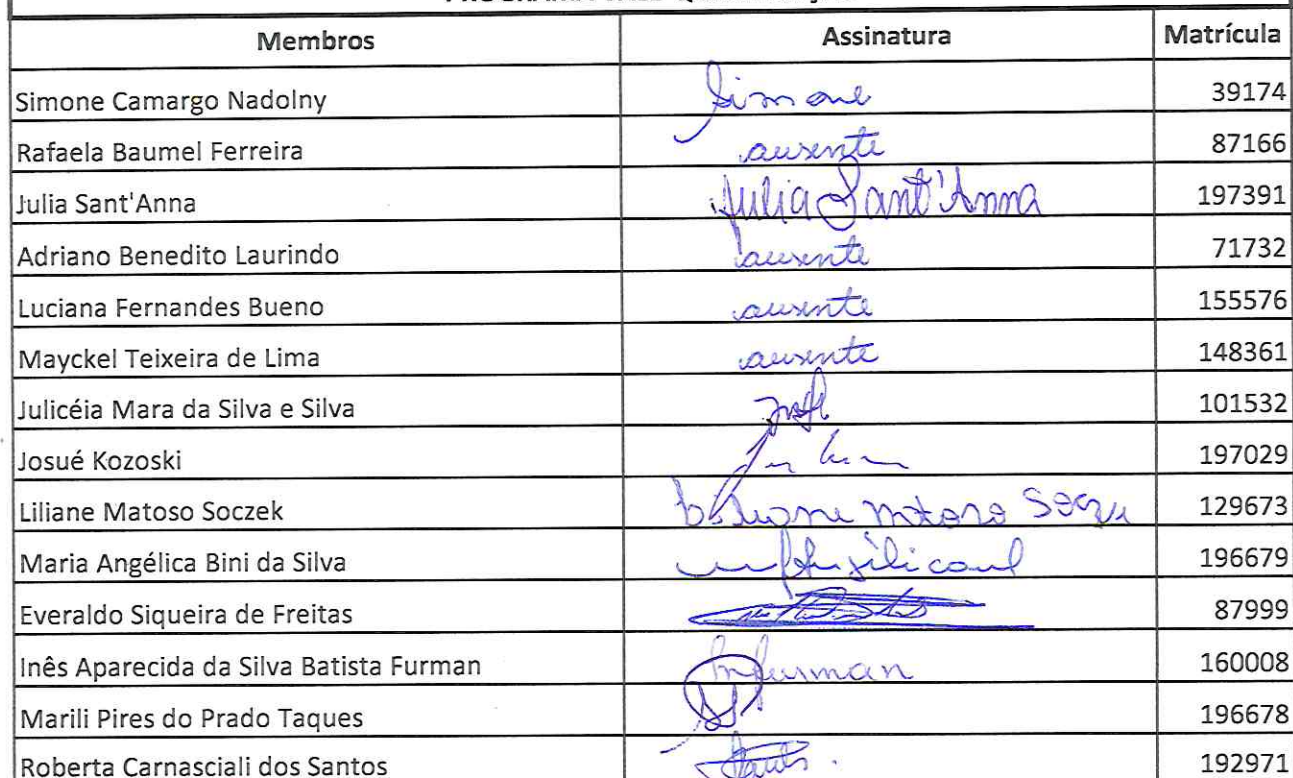 Membros Assinatura Matrícula
Simone Camargo Nadolny Simone 39174
Rafaela Baumel Ferreira ausente 87166
Julia Sant'Anna Julia Sant'Anna 197391
Adriano Benedito Laurindo ausente 71732
Luciana Fernandes Bueno ausente 155576
Mayckel Teixeira de Lima ausente 148361
Julicéia Mara da Silva e Silva 101532
Josué Kozoski 197029
Liliane Matoso Soczek 129673
Maria Angélica Bini da Silva 196679
Everaldo Siqueira de Freitas 87999
Inês Aparecida da Silva Batista Furman 160008
Marili Pires do Prado Taques 196678
Roberta Carnasciali dos Santos 192971